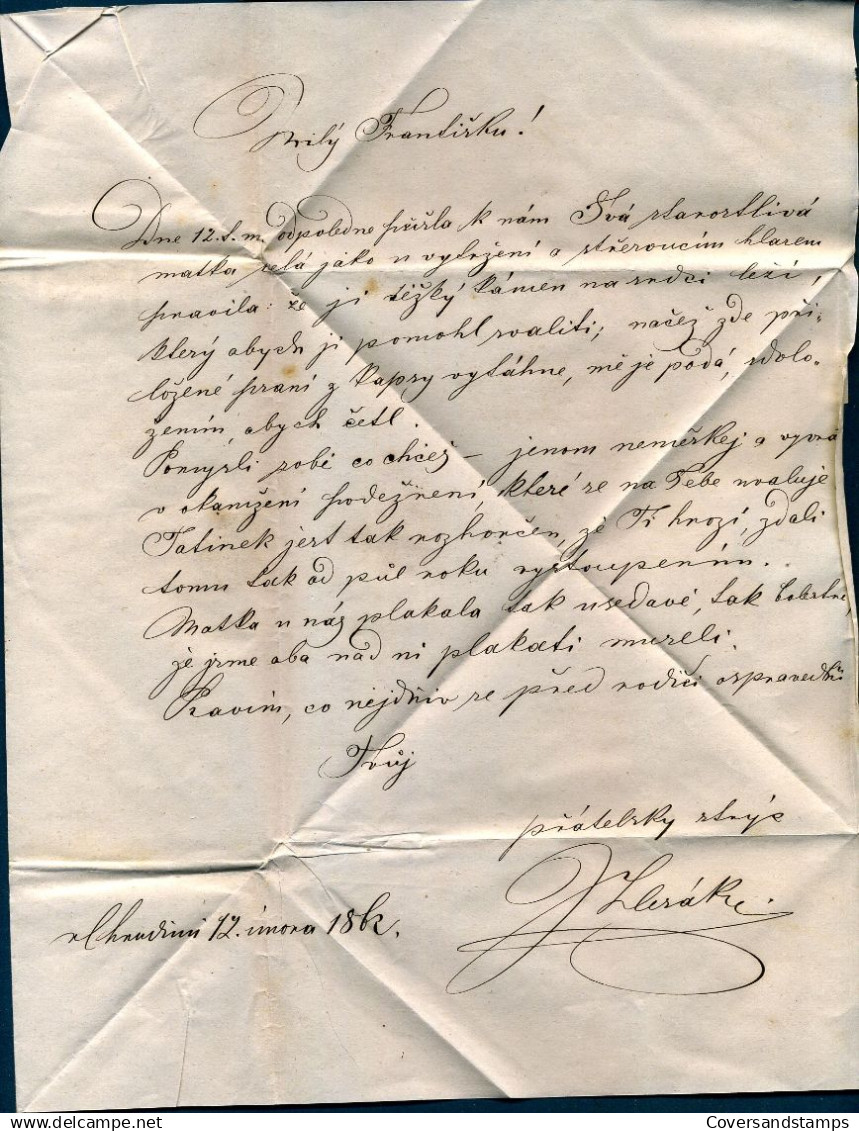 Milý Františku!
Dne 12. t. m. odpoledne přišla k nám Tvá starostlivá
matka celá jako u vytržení a střesoucím hlasem
pravila: že jí těžký kámen na srdci leží,
který abych jí pomohl svaliti; načež zde při-
ložené psaní z kapsy vytáhne, mě je podá, sdolo-
žením, abych četl.
Pomysli sobě co chceš – jenom neměškej a vyvrá
v okamžení podezření, které se na Tebe uvaluje
Tatínek jest tak rozhorčen, že Ti hrozí, zdali
tomu tak od půl roku vystoupením.
Matka u nás plakala tak usedavě, tak bolestně,
že jsme oba nad ní plakati museli.
Pravím, co nejdřív se před rodiči ospravedlň
Tvůj
přátelsky strýc
v Chrudimi 12. února 1862.
Coversandstamps